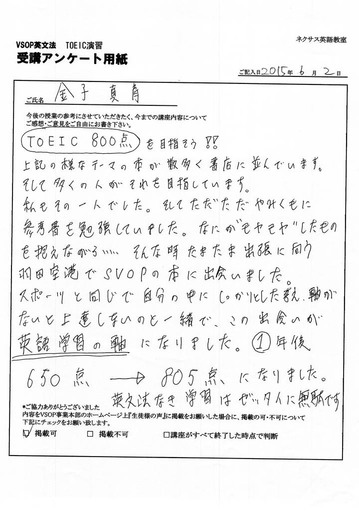 ネクサス英語教室
VSOP英文法 TOEIC演習
受講アンケート用紙
ご記入日2015年6月2日
ご氏名 金子 真育
今後の授業の参考にさせていただきたく、今までの講座内容について
ご感想・ご意見をご自由にお書き下さい。
TOEIC 800点 を目指そう!!
上記の様なテーマの本が数多く書店に並んでいます。
そして多くの人がそれを目指しています。
私もその一人でした。そしてただただやみくもに
参考書を勉強していました。なにか"モヤモヤ"したもの
を抱えながら…… そんな時たまたま出張に向う
羽田空港でSVOPの本に出会いました。
スポーツと同じで自分の中にしっかりとした考え、軸が
ないと上達しないのと一緒で、この出会いが
英語学習の軸 になりました。 ①年後
650点 → 805点 になりました。
英文法なき学習はゼッタイに無駄です
*ご協力ありがとうございました
内容をVSOP事業本部のホームページ上『生徒様の声』に掲載をお願いした場合に、掲載の可・不可について
下記にチェックをお願い致します。
☑ 掲載可 □ 掲載不可 □講座がすべて終了した時点で判断